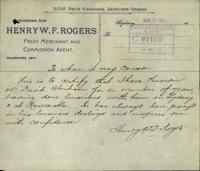 FRUIT EXCHANGE, BATHURST STREET
HENRY W. F. ROGERS
FRUIT MERCHANT AND
COMMISSION AGENT.
Sydney
To whom it may concern
This is to certify that I have known
Mr David for a number of years
having done business with him in Sydney
& at Newcastle. He has always been prompt
in his business dealings and inspires one
with confidence.
Henry W F Rogers